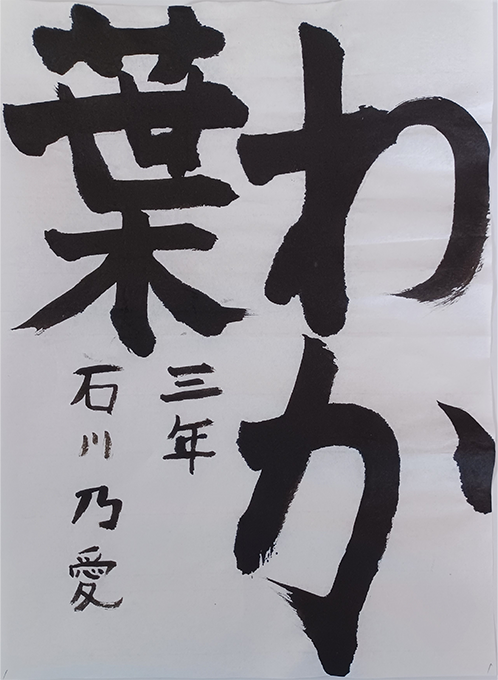 わか
葉
三年
石川乃愛